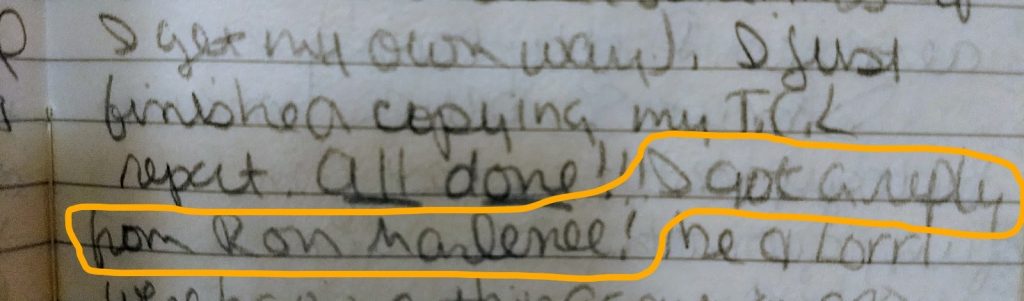 I get my own way). I just
finished copying my T.C.L
report. All done!! I got a reply
from Ron Marlenee! Me & Lorri